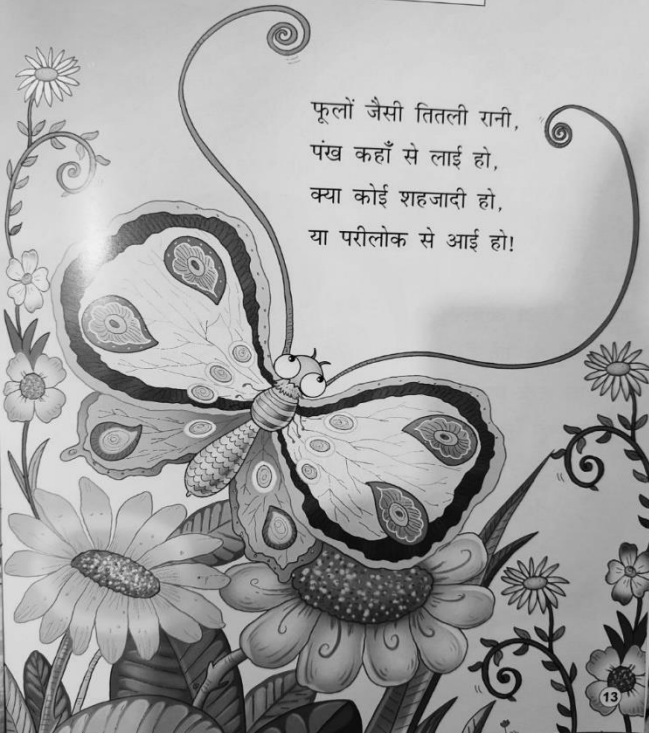 फूलों जैसी तितली रानी,
पंख कहाँ से लाई हो,
क्या कोई शहजादी हो,
या परीलोक से आई हो!
13